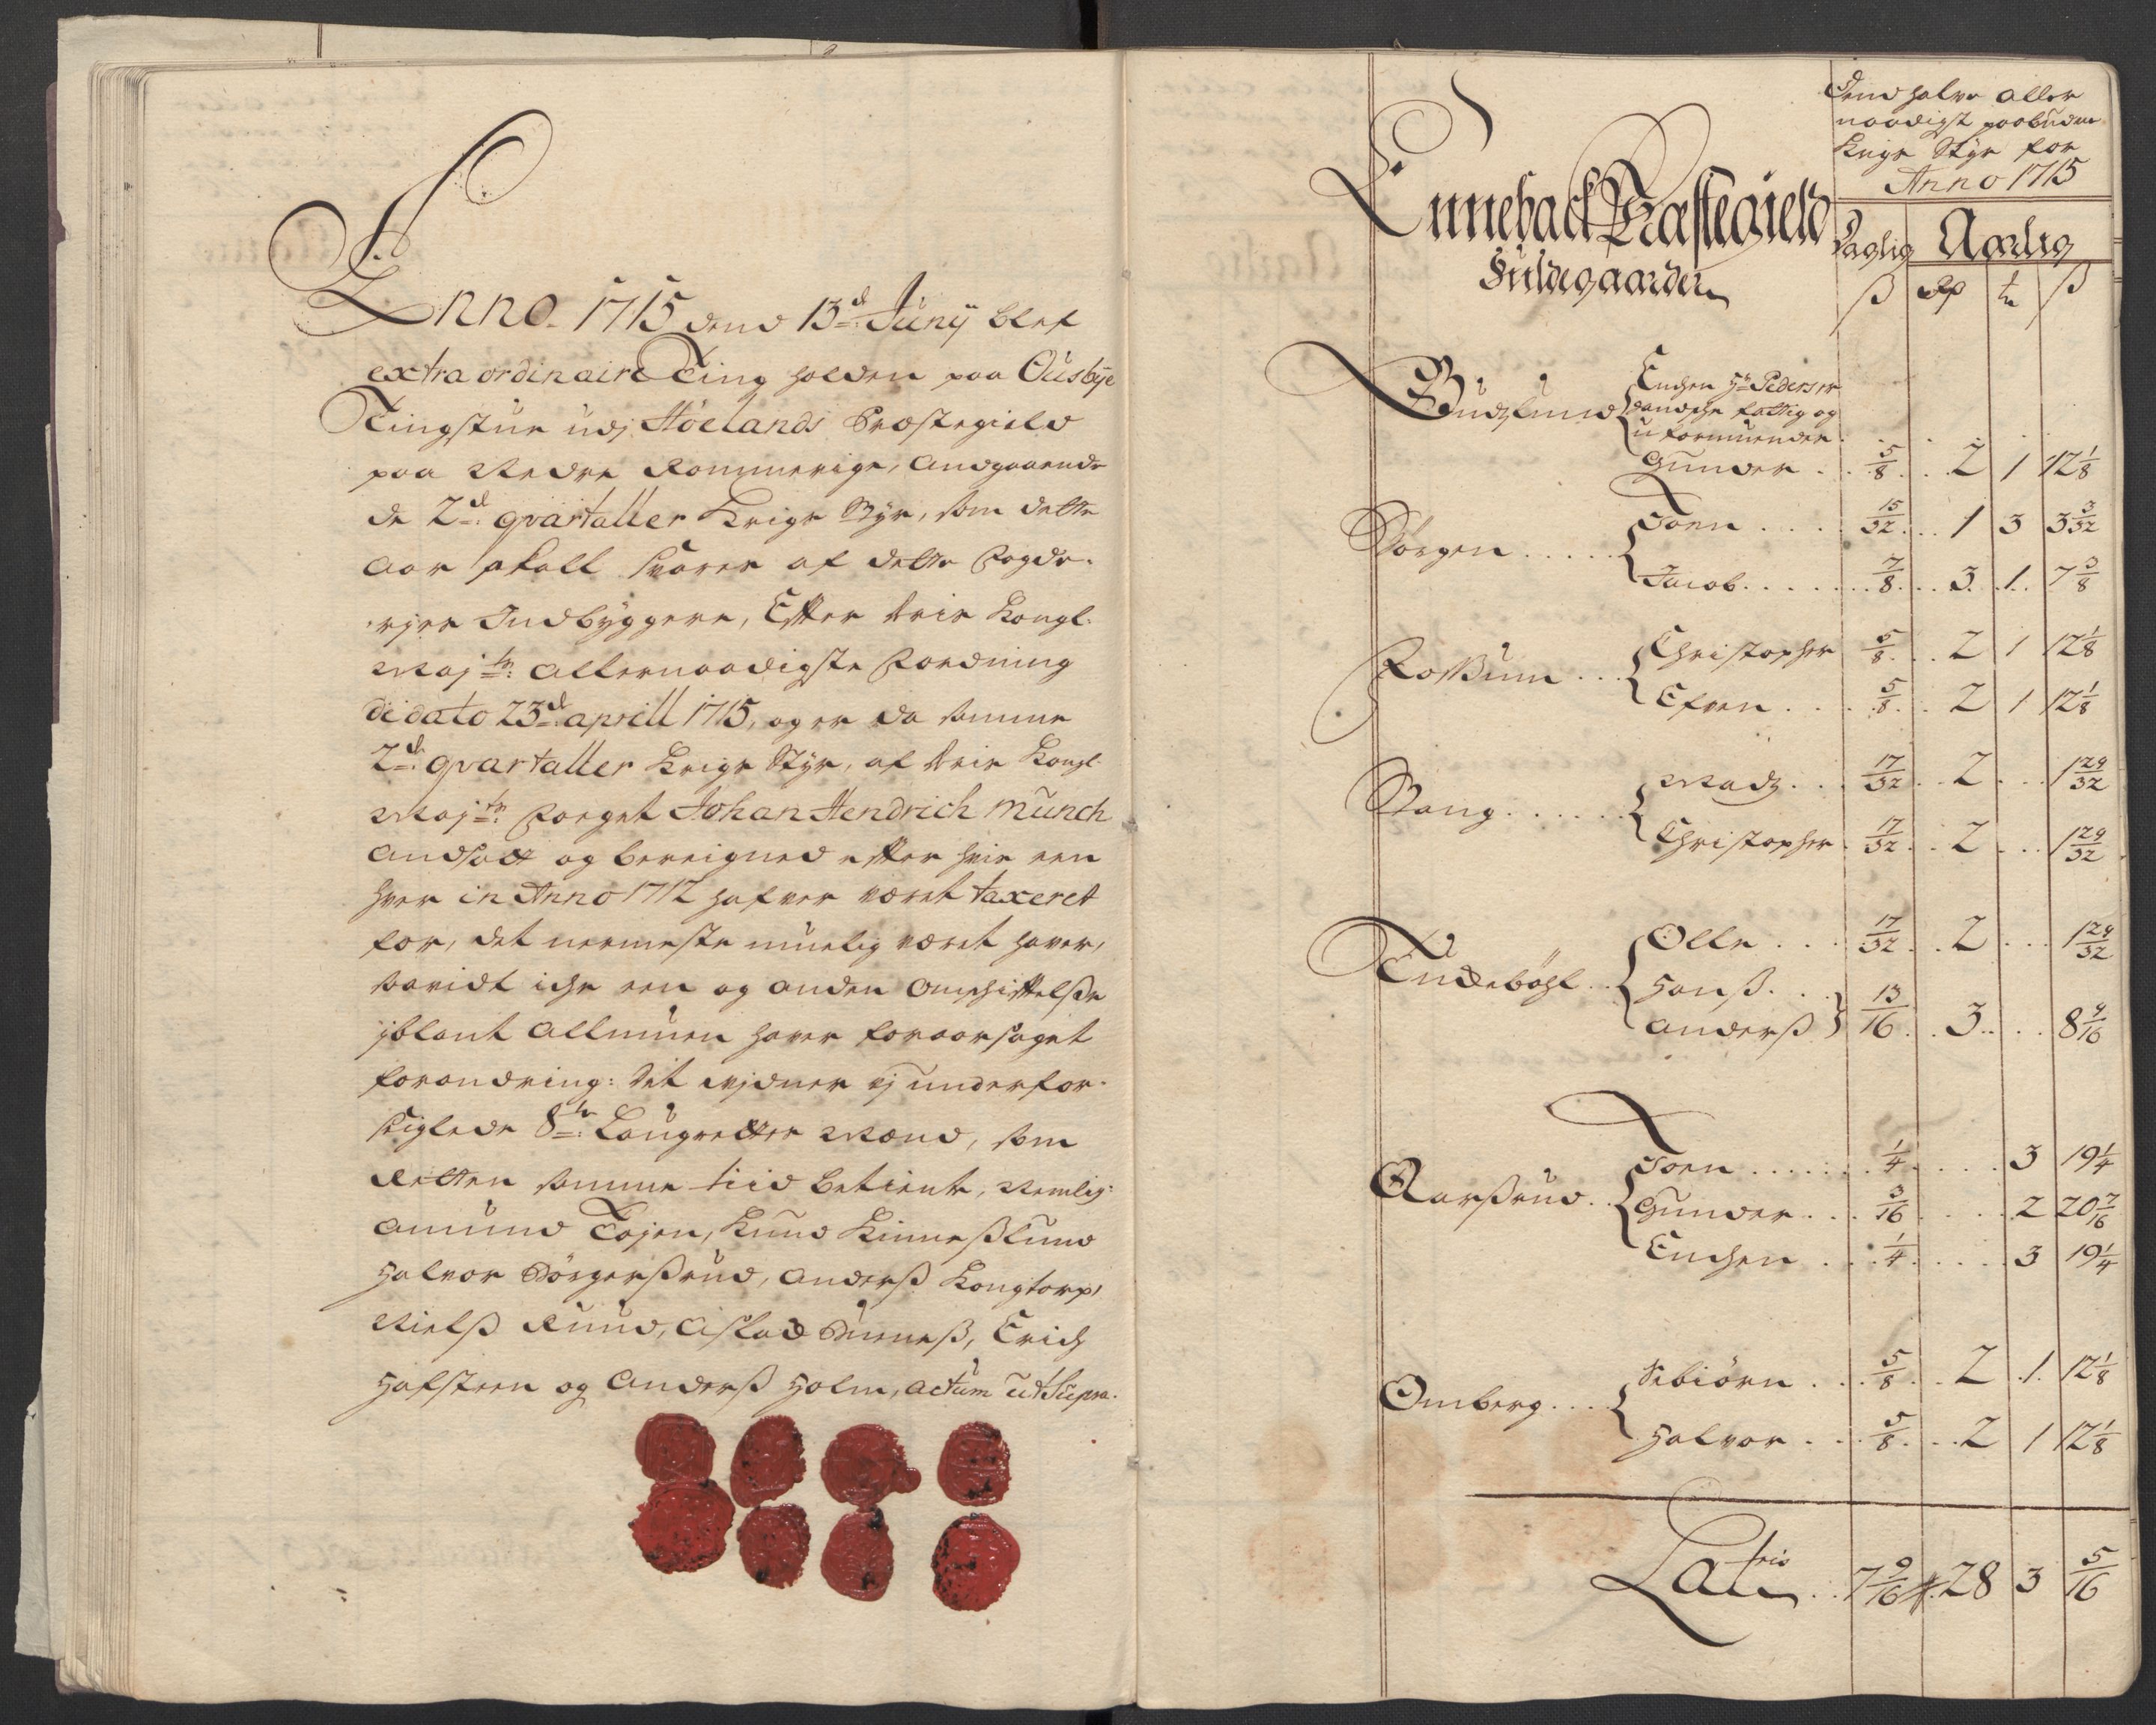 Anno. 1715 dend 13de: Junij blef
extraordinaire Ting holden paa Ousbÿe
Tingstue udj Höelands Præstegield
paa Nedre Rommerige, Andgaaende
de 2de: qvartaller Krigs Styr, som dette
Aar skall svares af dette Fogde-
rjes Indbyggere, Efter deris Kongl:
Maj:ts: allernaadigste Fordning
de dato 23de aprill 1715, og er da samme
2de: qvartaller Krigs Styr, af deris Kongl:
Maj:ts: Foeget Johan Hendrich Munch
Andsatt og bereigned efter hvis een
hver in Anno 1712 hafver været taxeret
for, det nermeste muelig været haver,
saavidt iche een og anden omschiftelse
jblant Allmuen haver foraarsaget
forandring: Dit vidner vj underfor-
seiglede 8te: Laugrettes Mænd, som
Retten samme tiid betiente, Nemlig:
Amund Tojen, Knud Kinneßlund
Halvor Börgerßrud, Anderß Kongtorp,
Nielß Ruud, Aslad Bureneß, Erich
Hafsteen og Anderß Holm, actum ut Supra.
Dend halve aller
naadigst paabudne
Krigs Styr for
Anno 1715
Enneback Præstegield
Fuldegaarder
Daglig Aarlig
ß rd ort ß
Budslund Enchen Sr Peders er
gandsche fattig og
uformuende
Gunder . . 5/8 . . 2 1 12 1/8
Börgen . . . . . Joen . . . . 15/32 . . . 1 3 3 3/32
Jacob . . . . . 7/8 . . . 3 . 1 . . 7 3/8
Roßum . . . Christopher 5/8 . . 2 1 12 1/8
Efven . . . 5/8 . . 2 1 12 1/8
Vang . . . . . . Madz . . . 17/32 . . 2 . . . 1 29/32
Christopher . 17/32 . . 2 . . . 1 29/32
Tudeböhl . . Olle . . . 17/32 . . 2 . . . 1 29/32
Hanß . . .
Anderß 13/16 . . 3 . . . . 8 9/16
Aarßrud . . Joen . . . . . . . 1/4 . . . . . 3 19 1/4
Gunder . . . 3/16 . . . . 2 20 7/16
Enchen . . . 1/4 . . . . . 3 19 1/4
Omberg . . . . Aebiörn . . . 5/8 . . 2 . 1 . 12 1/8
Halvor . . . 5/8 . . . 2 1 12 1/8
Lateris . . 7 9/16 ß . 28 3 5/16